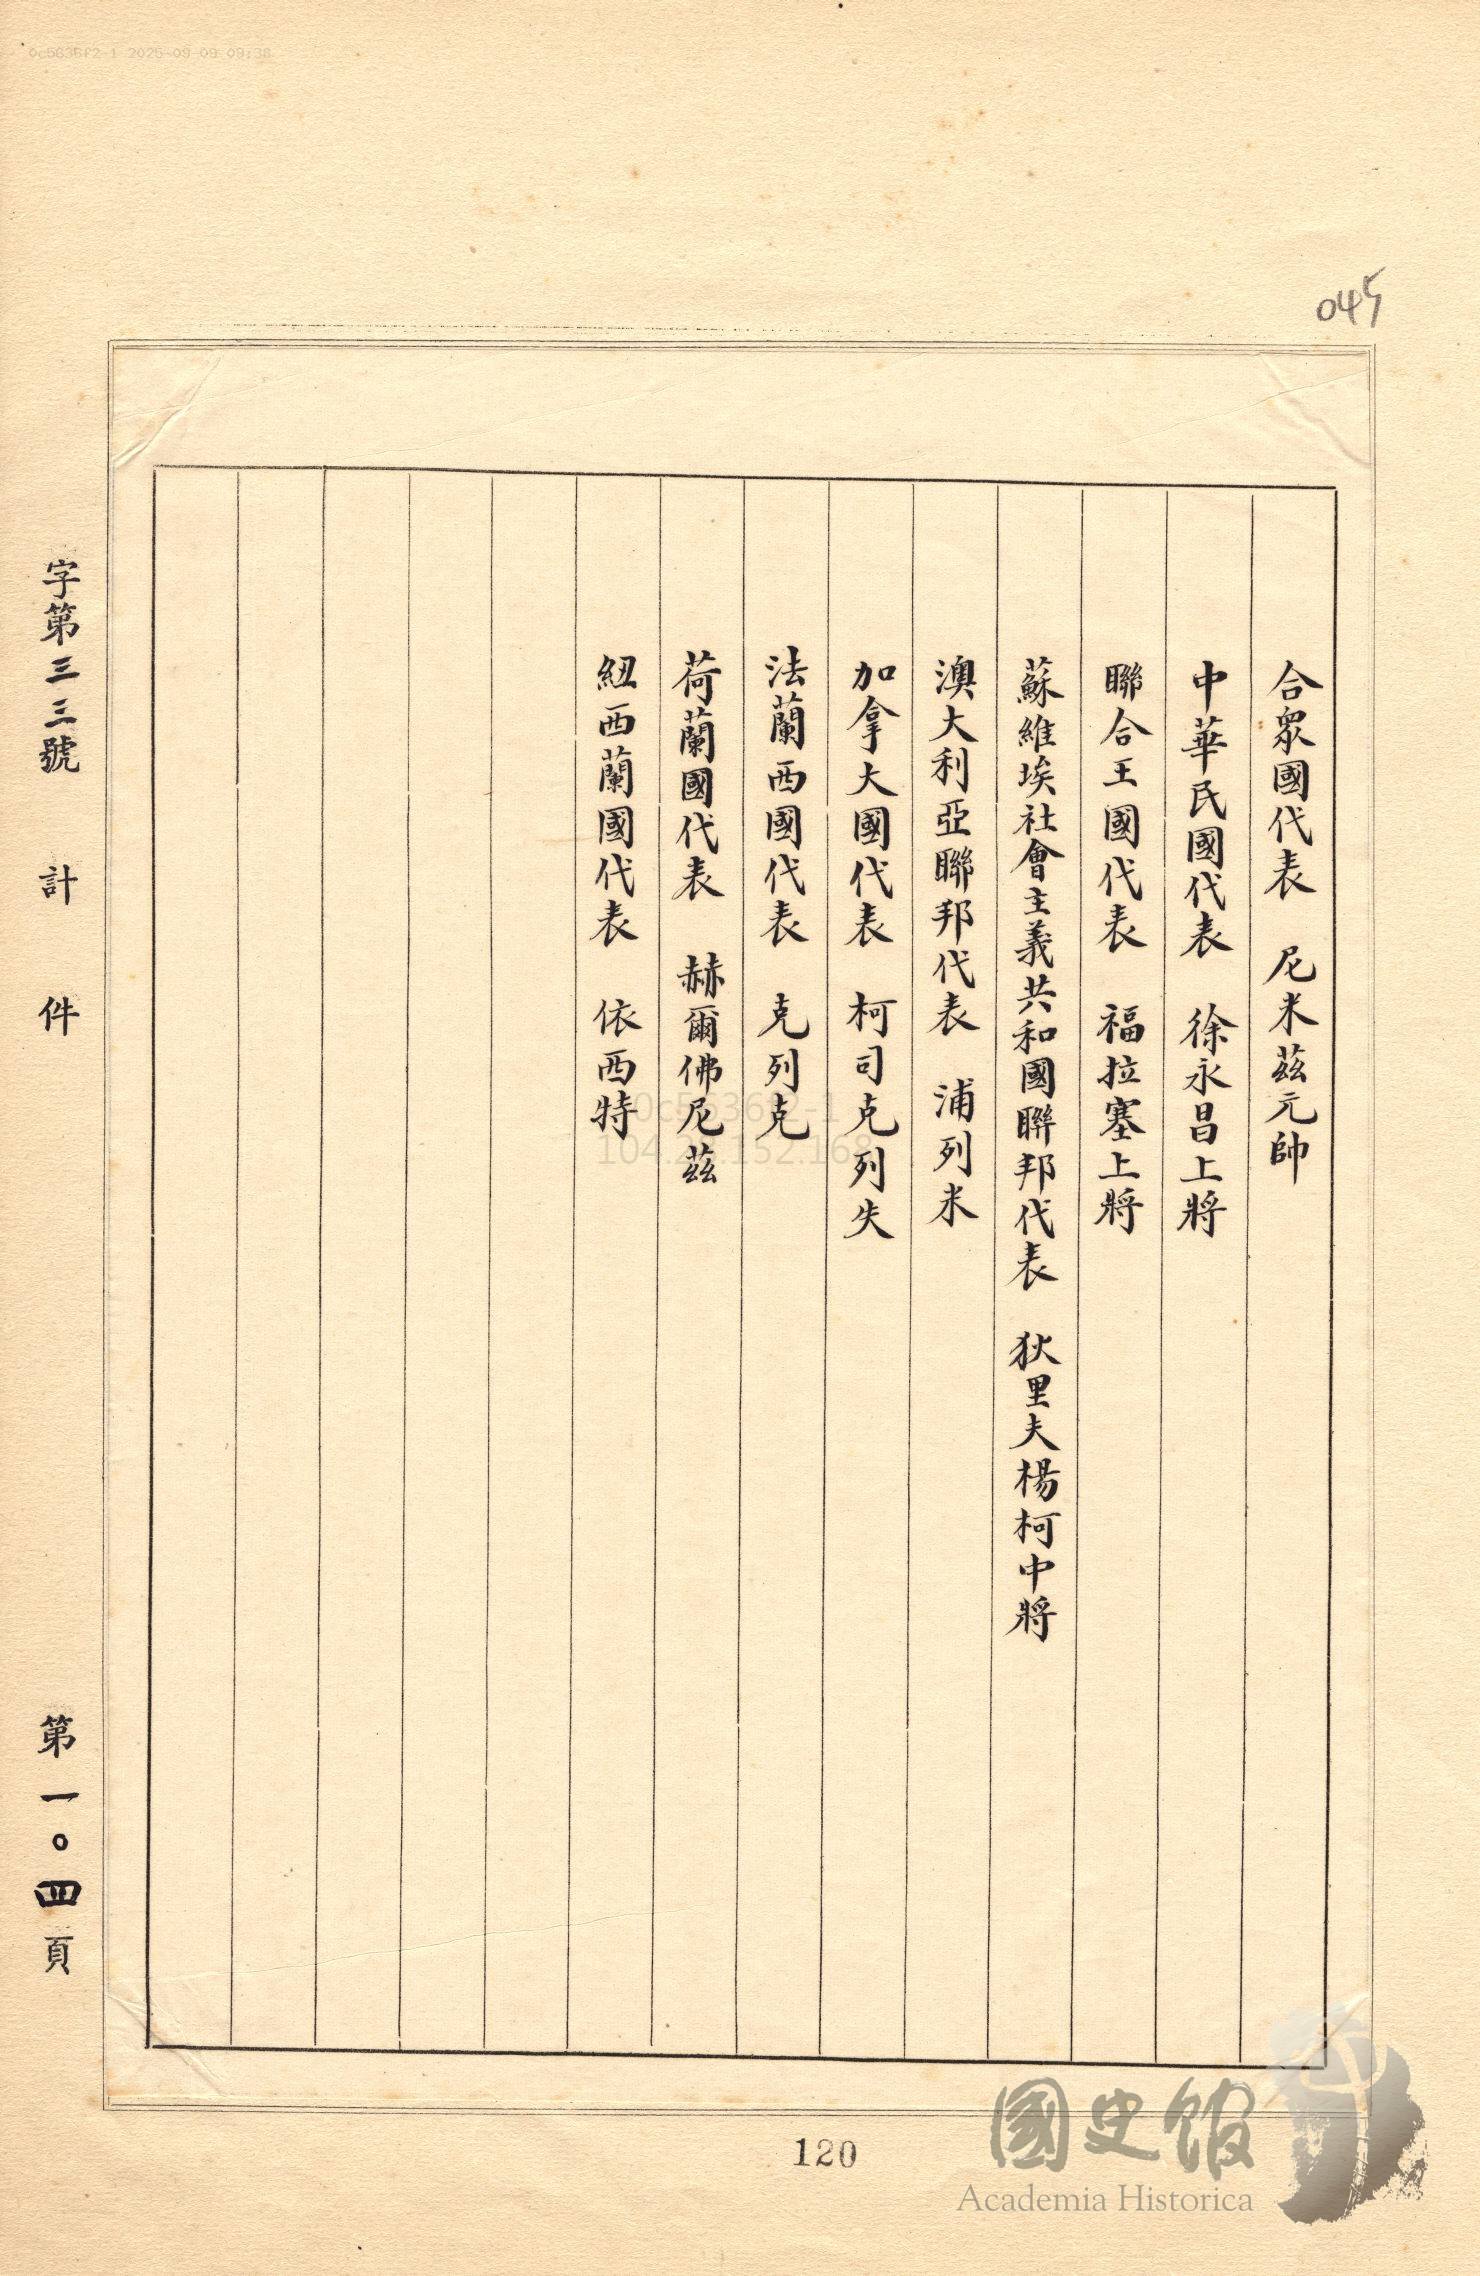 0c5636f2-1 2025-09-09 09:38
045
合眾國代表　尼米茲元帥
中華民國代表　徐永昌上將
聯合王國代表　福拉塞上將
蘇維埃社會主義共和國聯邦代表　狄里夫楊柯中將
澳大利亞聯邦代表　浦列米
加拿大國代表　柯司克列失
法蘭西國代表　克列克
荷蘭國代表　赫爾佛尼茲
紐西蘭國代表　依西特
字第三三號　計　件　第一〇四頁
0c5636f2-1
104.28.152.168
120
國史館
Academia Historica